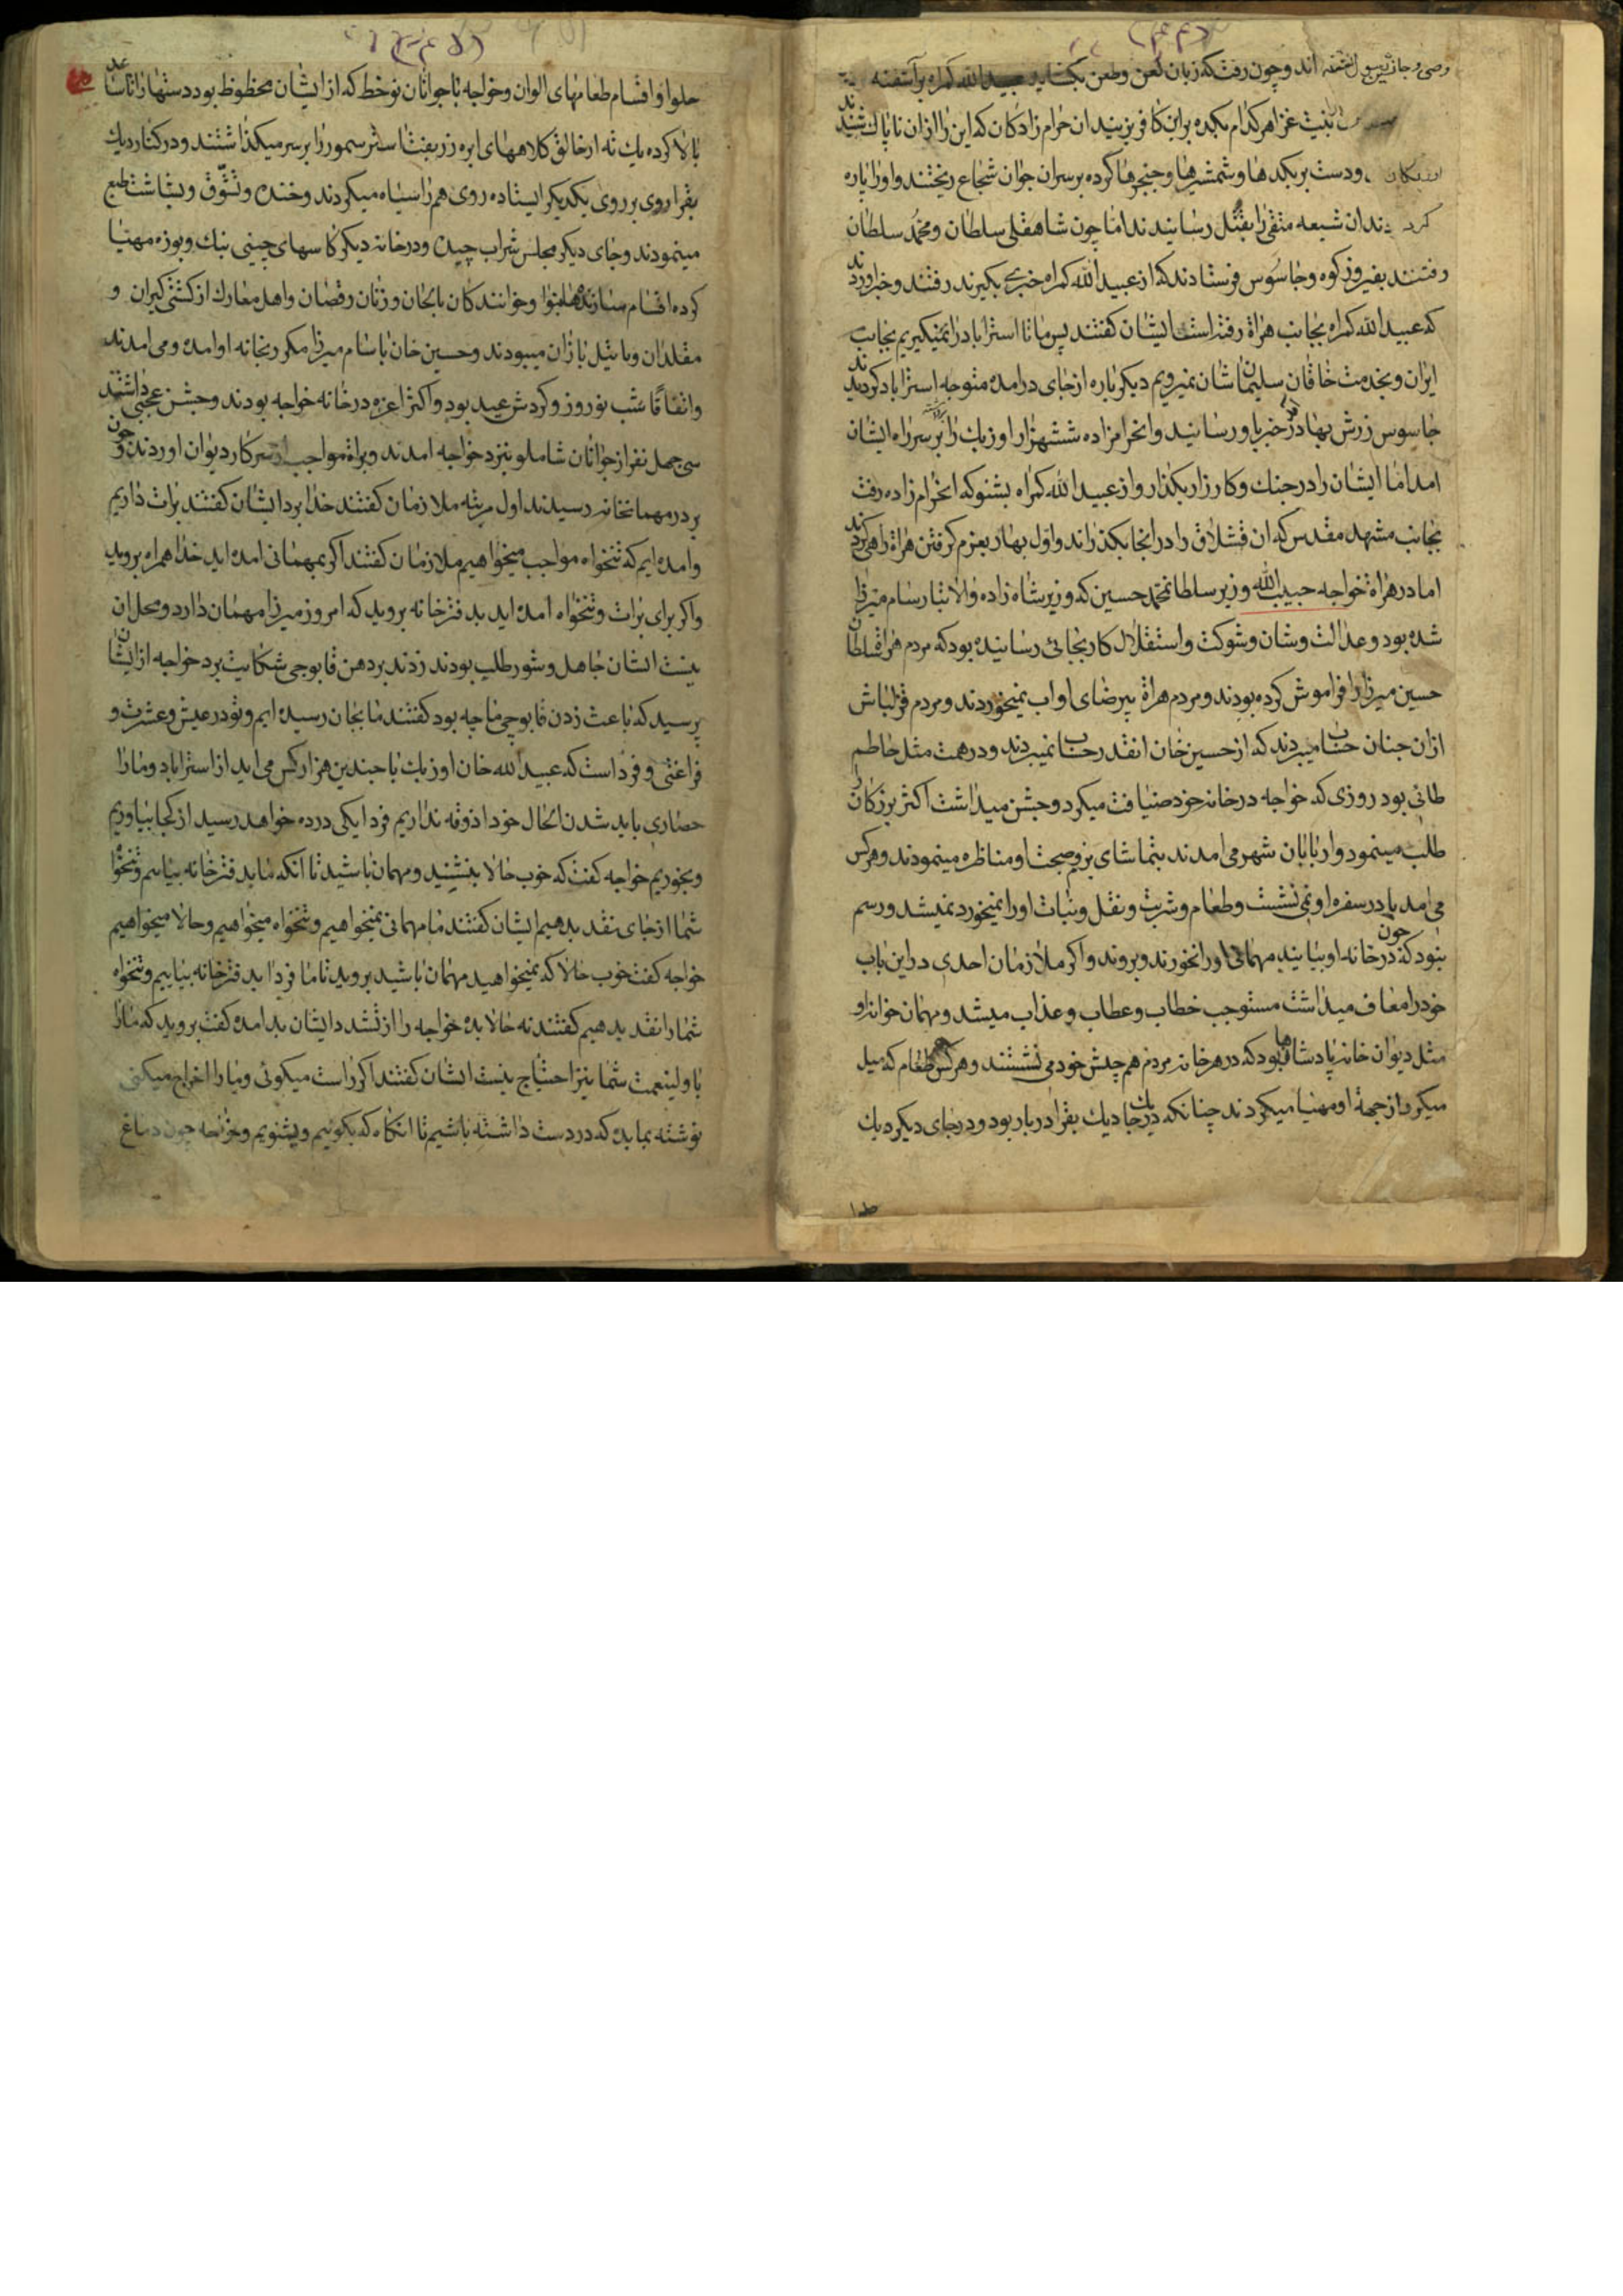 وصی و جانشین رسول الله اند و چون رفت که زبان لعن و طعن بکشاید عبید الله کمراه برآشفته
بنیت غزا هر کدام بکده براین کافر بزنید ان حرام زادکان که این را ازان ناپاک شنیدند
و دست بر بکدها و شمشیرها و خنجرها کرده بر سر ان جوان شجاع ریختند و او را پاره
کردند ان شیعه متقی را بقتل رسانیدند اما چون شاهقلی سلطان و محمد سلطان
رفتند بفیروز کوه و جاسوس فرستادند که از عبید الله کمراه خبری بکیرند رفتند و خبر اوردند
که عبید الله کمراه بجانب هراة رفته است ایشان کفتند پس ما تا استراباد را نمیکیریم بجانب
ایران و بخدمت خاقان سلیمان شان نمیرویم دیکر باره از جای درامده متوجه استراباد کردیدند
جاسوس زرش بهادر خبر باو رسانید و انحرامزاده ششهزار اوزبک را بر سر راه ایشان
امد اما ایشان را در جنک و کارزار بکذار و از عبید الله کمراه بشنو که انحرام زاده رفت
بجانب مشهد مقدس که ان قشلاق را در انجا بکذراند و اول بهار بعزم کرفتن هراة راهی کردد
اما در هراة خواجه حبیب الله وزیر سلطانمحمد حسین که وزیر شاه زاده والاتبار سام میرزا
شده بود و عدالت و شان و شوکت و استقلال کار بجائی رسانیده بود که مردم هراة سلطان
حسین میرزا را فراموش کرده بودند و مردم هراة بیرضای او اب نمیخوردند و مردم قزلباش
ازان چنان حساب میبردند که از حسین خان انقدر حساب نمیبردند و در همت مثل حاطم
طائی بود روزی که خواجه در خانه خود ضیافت میکرد و جشن میداشت اکثر بزرکان را
طلب مینمود و اربابان شهر می امدند بتماشای بزم و صحبت او مناظره مینمودند و هر کس
می امد باید در سفره او می نشست و طعام و شربت و نقل و نبات او را نمیخورد نمیشد و رسم
نبود که چون در خانه او بیایند مهمانی او را نخورند و بروند و اکر ملازمان احدی در این باب
خود را معاف میداشت مستوجب خطاب و عطاب و عذاب میشد و مهمان خوانه او
مثل دیوان خانه پادشاها بود که در هر خانه مردم هم چشن خود می نشستند و هر کس هر طعام که میل
میکرد از جهة او مهیا میکردند چنانکه در یک جا دیک بقرا در بار بود و در جای دیکر دیک
حلوا و اقسام طعامهای الوان و خواجه با جوانان نوخط که از ایشان محظوظ بود دستها را تا ساعد
بالا کرده یک ته ارخالق کلاههای ابره زربفتا ستر سمور را بر سر میکذاشتند و در کنار دیک
بقرا روی بر روی یکدیکر ایستاده روی هم را سیاه میکردند و خنده و تشوق و بشاشت طبع
مینمودند و جای دیکر مجلس شراب چیده و در خانه دیکر کاسهای چینی بنک و بوزه مهیا
کرده اقسام سازنده ها بنوا و خوانندکان بالحان و زنان رقصان و اهل معارک از کشتی کیران و
مقلدان و بایتل بازان میبودند و حسین خان با سام میرزا مکرر بخانه او امده و می امدند
و اتفاقا شب نوروز و کردش عید بود و اکثر اعزه در خانه خواجه بودند و جشن عجبی داشتند
سی چهل نفر از جوانان شاملو بنزد خواجه امدند و براة مواجب از سر کار دیوان اوردند و چون
بر در مهمانخانه رسیدند اول مرتبه ملازمان کفتند خدا بردا ایشان کفتند برات داریم
و امده ایم که تنخواه مواجب میخواهیم ملازمان کفتند اکر بمهمانی امده اید خدا همراه بروید
و اکر برای برات و تنخواه امده اید بدفترخانه بروید که امروز میرزا مهمان دارد و محل ان
نیست ایشان جاهل و شورطلب بودند زدند بر دهن قابوجی شکایت برد خواجه از ایشان
پرسید که باعث زدن قابوچی ما چه بود کفتند ما بجان رسیده ایم و تو در عیش و عشرت و
فراغتی و فرداست که عبید الله خان اوزبک با چندین هزار کس می اید از استراباد و ما را
حصاری باید شدن الحال خود اذوقه نداریم فردا یکی در ده خواهد رسید از کجا بیاوریم
و بخوریم خواجه کفت که خوب حالا بنشینید و مهمان باشید تا انکه ما بدفترخانه بیایم و تنخواه
شما از جای نقد بدهیم ایشان کفتند ما مهمانی نمیخواهیم و تنخواه میخواهیم و حالا میخواهیم
خواجه کفت خوب حالا که نمیخواهید مهمان باشید بروید تا ما فردا بدفترخانه بیاییم و تنخواه
شما را نقد بدهیم کفتند نه حالا بده خواجه را از تشدد ایشان بد امده کفت بروید که ما را
با ولینعمت شما نیز احتیاج نیست ایشان کفتند اکر راست میکوئی و ما را اخراج میکنی
نوشته بما بده که در دست داشته باشیم تا انکاه که بکوییم و بشنویم و خواجه چون دماغ